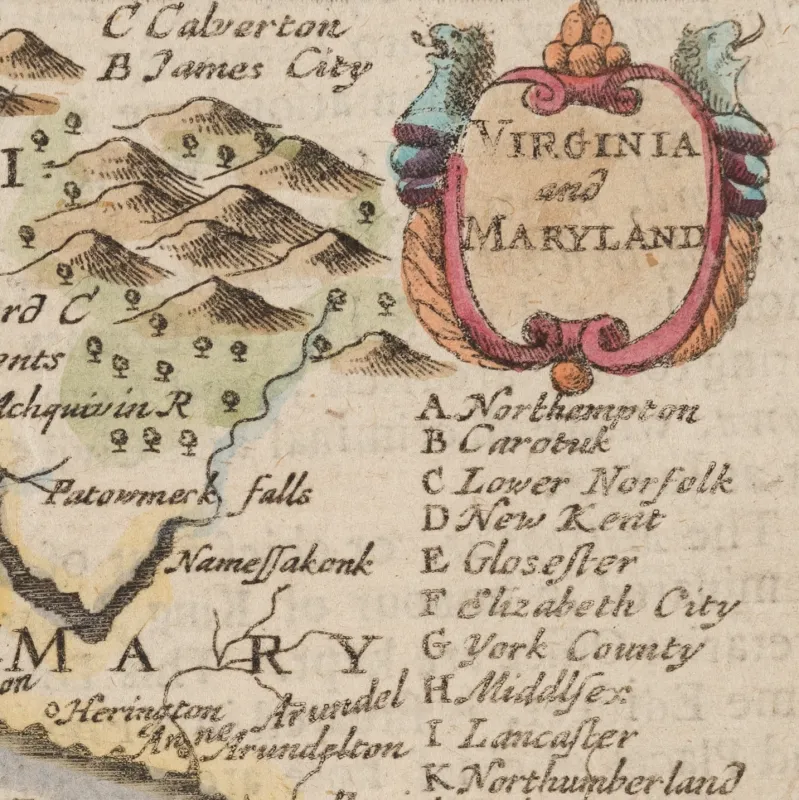 C Calverton
B James City
VIRGINIA
and
MARYLAND
I
rd C
ents
Achquivin R
Patowmeck falls
Nameſſakonk
MARY
on
Herington
Anne Arundel
Arundelton
A Northampton
B Carotuk
C Lower Norfolk
D New Kent
E Gloseſter
F Elizabeth City
G York County
H Middlſex
I Lancaſter
K Northumberland